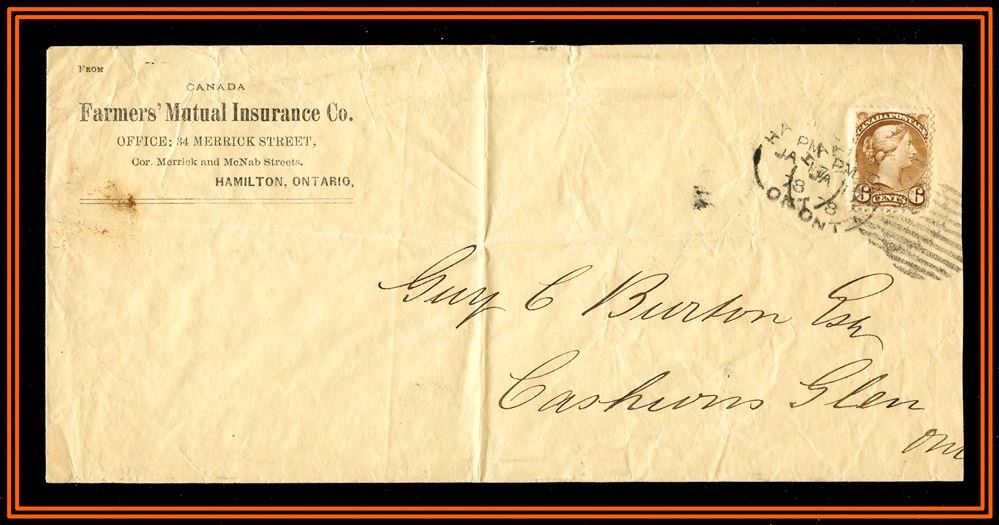 FROM
CANADA
Farmers' Mutual Insurance Co.
OFFICE: 34 MERRICK STREET,
Cor. Merrick and McNab Streets.
HAMILTON, ONTARIO,
CANADA POSTAGE
6 CENTS 6
PM PM
JA JA
78 78
ONT ONT
Guy C Burton Esq
Cashions Glen
Ont